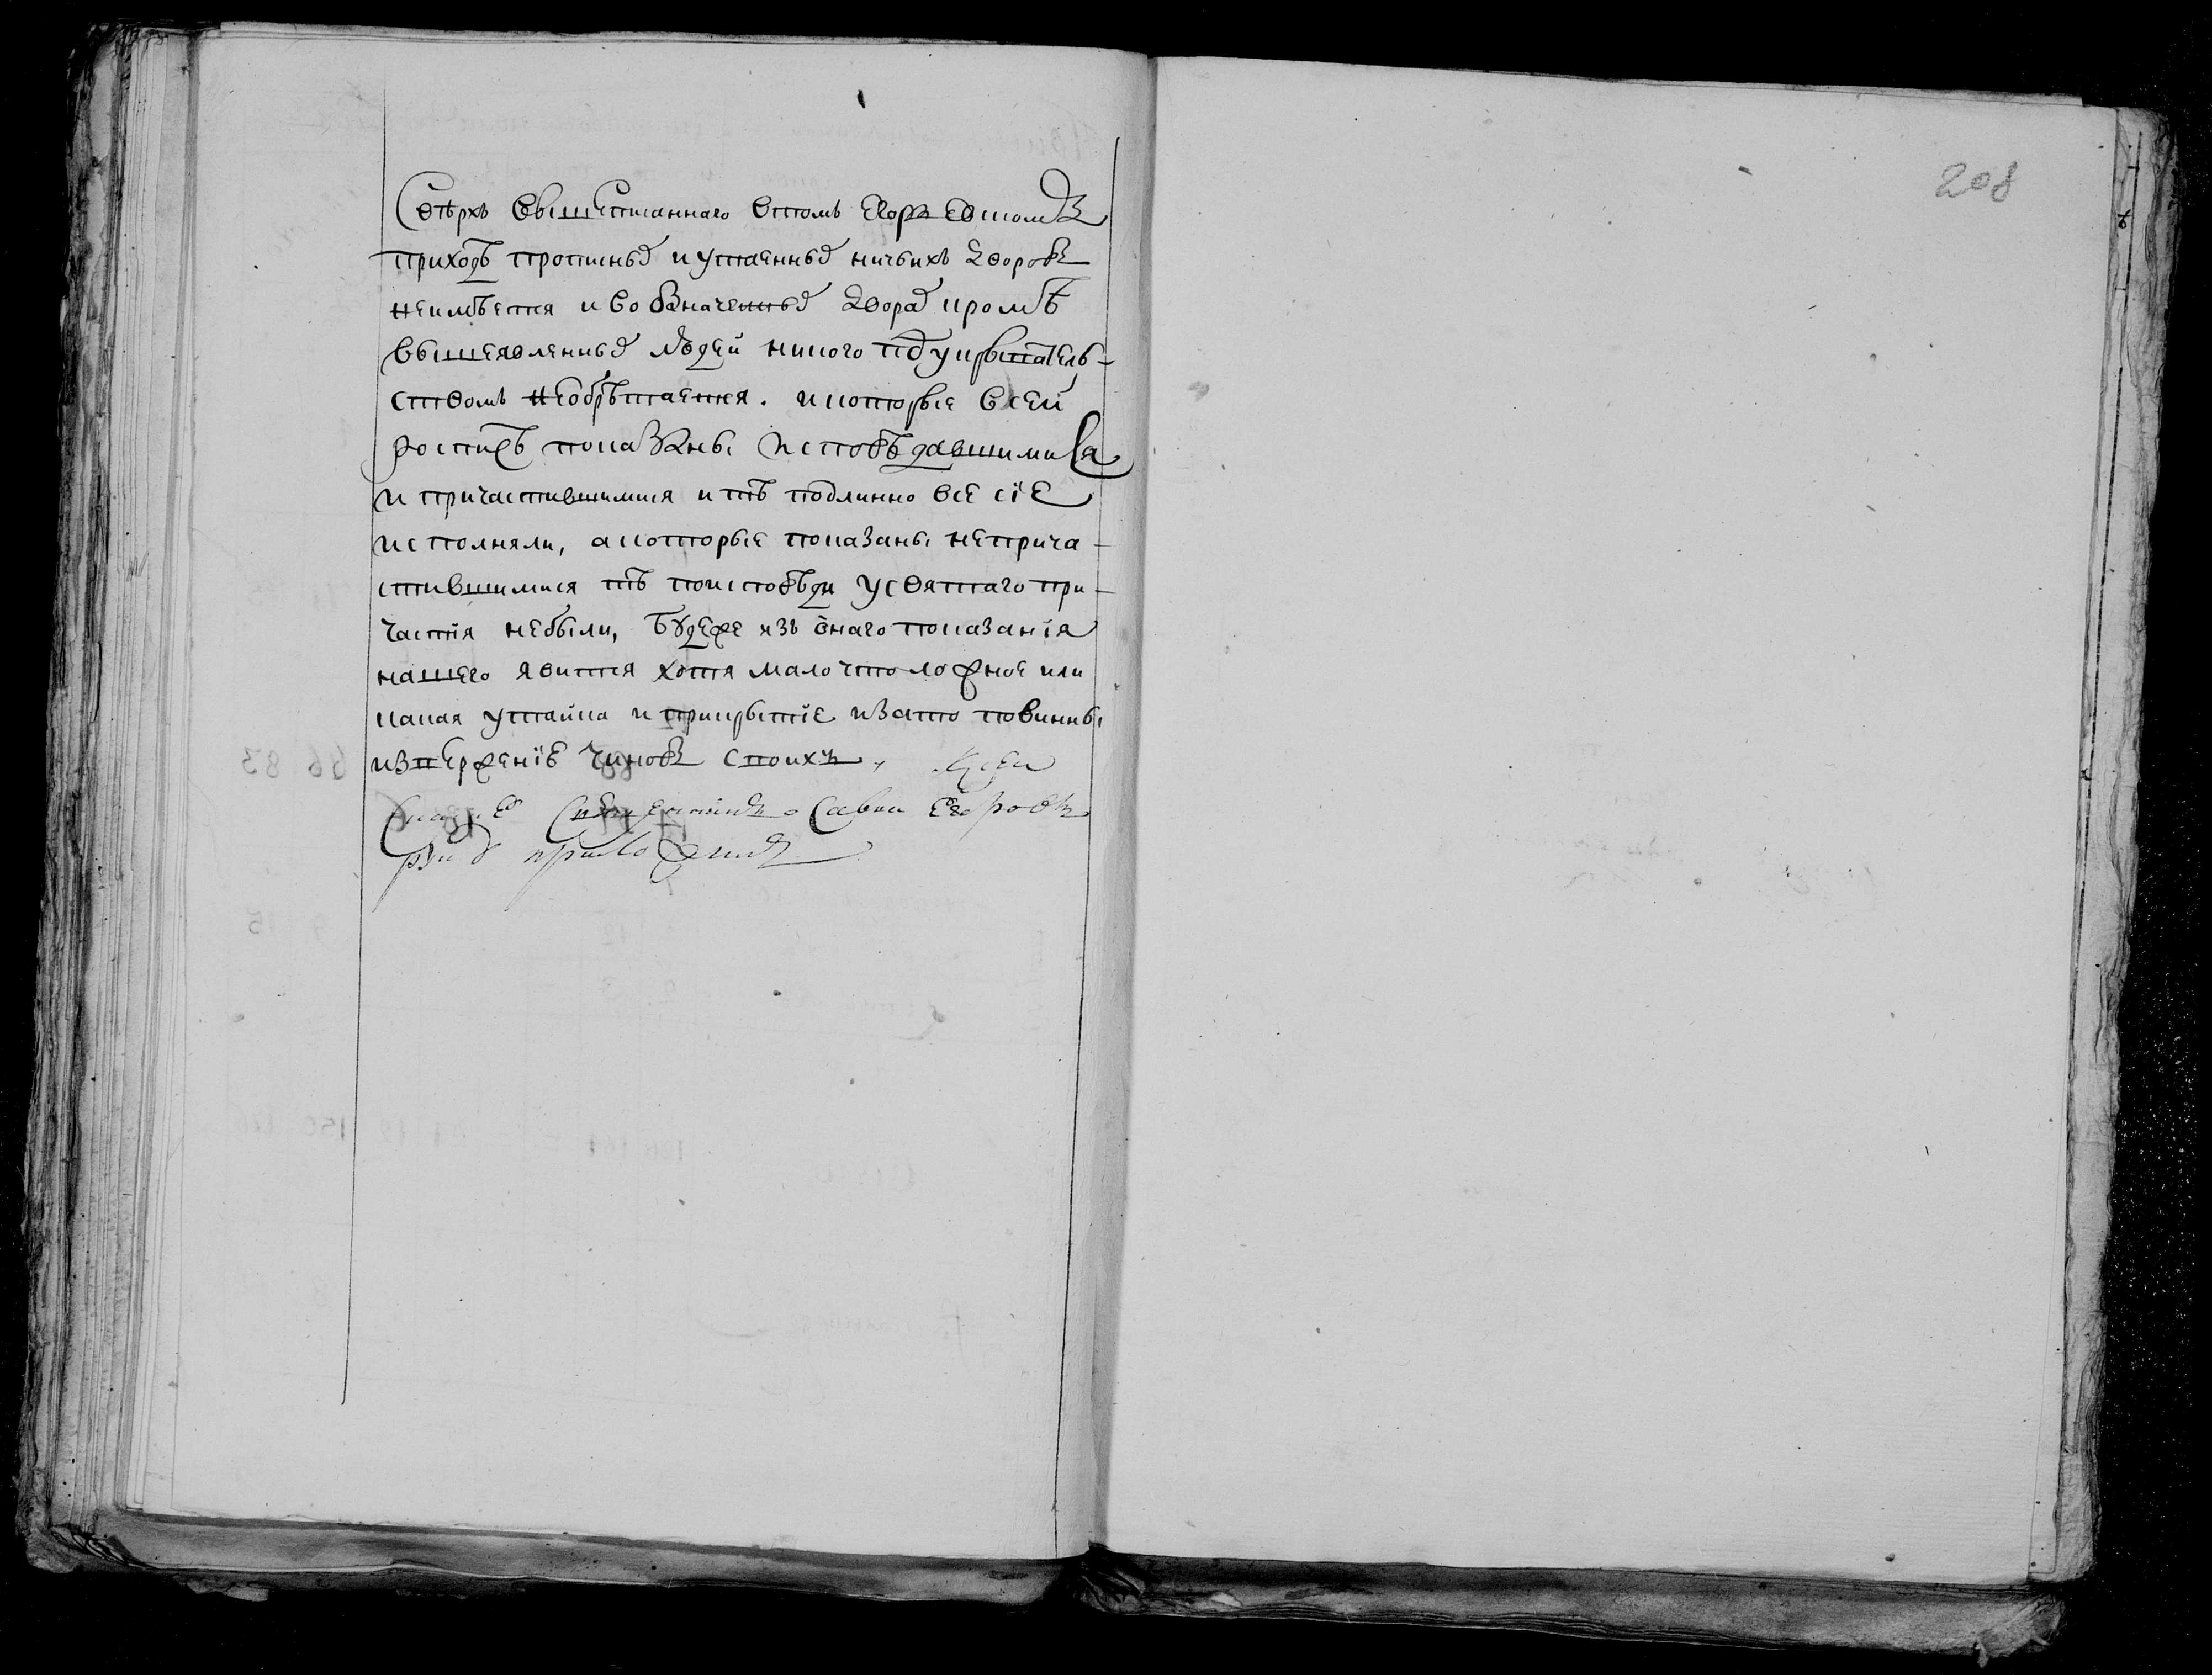 Сверхъ вышеписаннаго втомъ
приходѣ прописныхъ иутаенныхъ ничьихъ дворовъ
неимѣется и во означенныхъ дворахъ кромѣ
вышеявленныхъ людей никого подукрыватель-
ствомъ необрѣтается. икоторые всей
росписѣ показаны исповѣдавшимися
и причастившимися и тѣ подлинно все сїе
исполняли, а которые показаны неприча-
стившимися тѣ поисповѣди усвятаго при-
частїя небыли, будеже изъ онаго показанїя
нашего явится хотя мало что ложное или
какая утайка и прикрытїе изато повинны
извержению чиновъ своихъ, Ксей
священникъ Савва
руку приложилъ
208